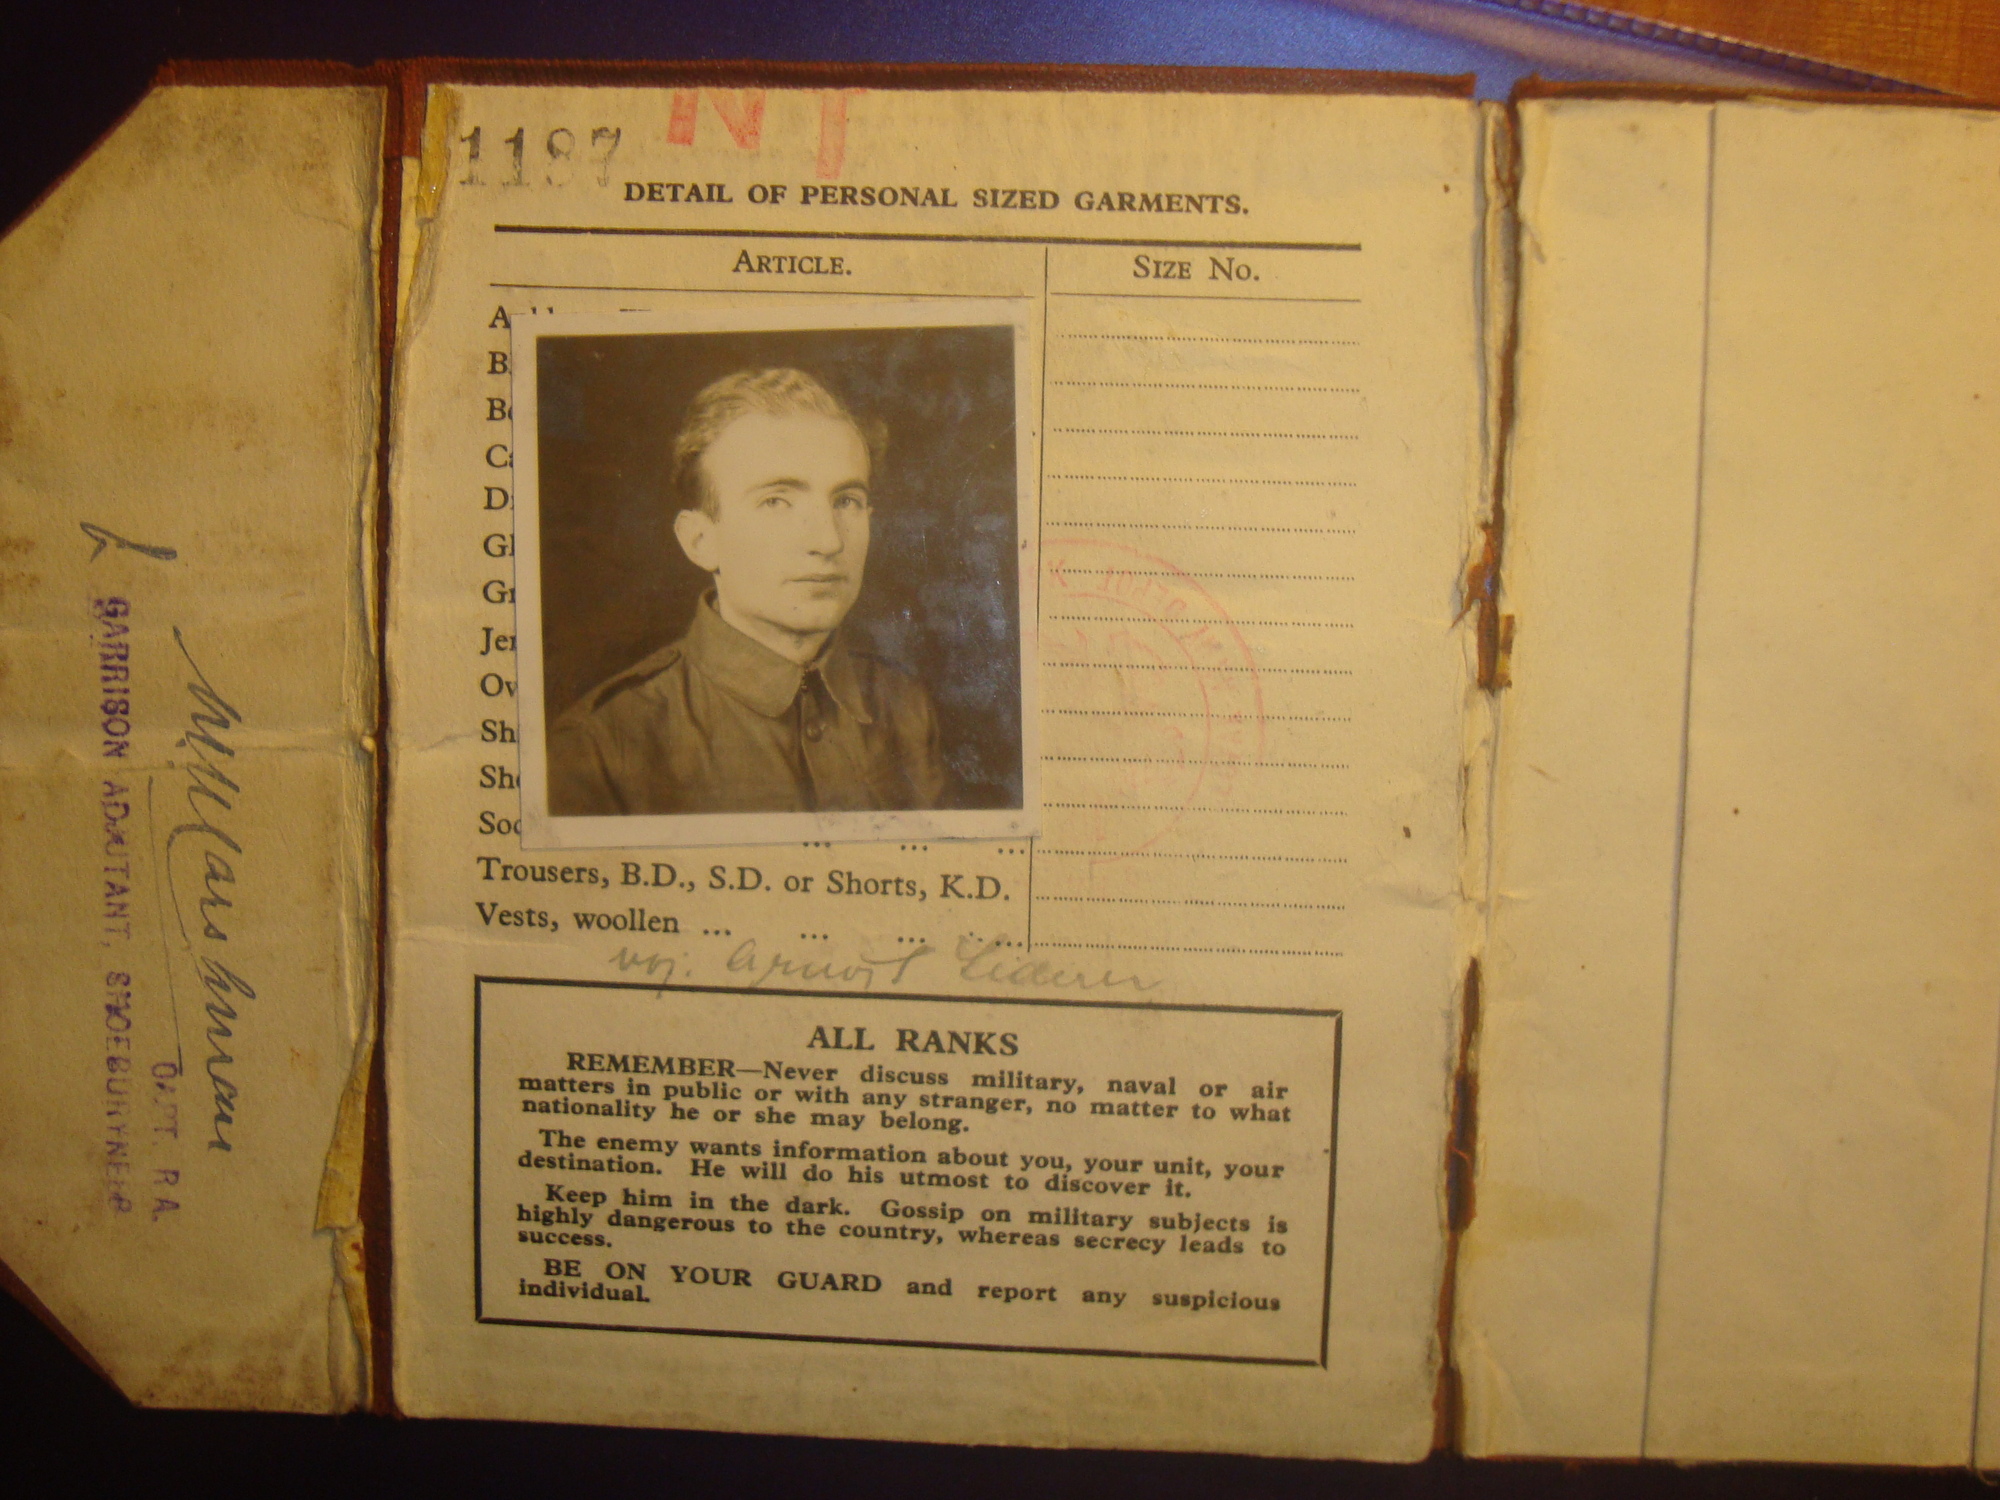 1187
NT
DETAIL OF PERSONAL SIZED GARMENTS.
ARTICLE.
SIZE No.
A
B
Bo
Ca
D
Gl
Gr
Jer
Ov
Sh
Sho
Soc ... ... ...
Trousers, B.D., S.D. or Shorts, K.D.
Vests, woollen ... ... ... ...
voj. Arnošt Liderer
ALL RANKS
REMEMBER—Never discuss military, naval or air
matters in public or with any stranger, no matter to what
nationality he or she may belong.
The enemy wants information about you, your unit, your
destination. He will do his utmost to discover it.
Keep him in the dark. Gossip on military subjects is
highly dangerous to the country, whereas secrecy leads to
success.
BE ON YOUR GUARD and report any suspicious
individual.
CAPT. R.A.
GARRISON ADJUTANT, SHOEBURYNESS